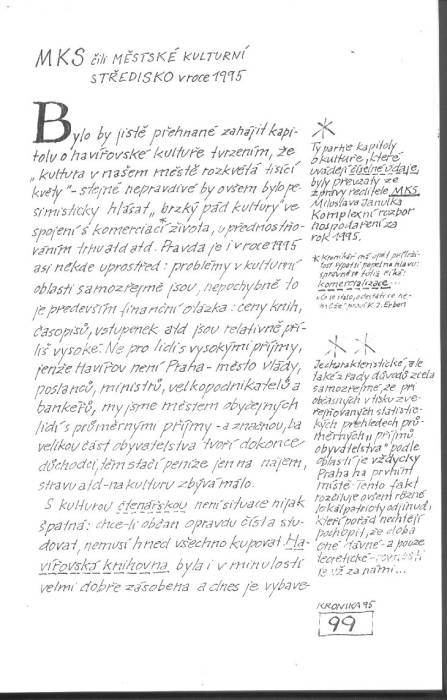 MKS čili MĚSTSKÉ KULTURNÍ
STŘEDISKO v roce 1995
Bylo by jistě přehnané zahájit kapi-
tolu o havířovské kultuře tvrzením, že
„kultura v našem městě rozkvétá tisíci
květy" - stejně nepravdivé by ovšem bylo pe-
simisticky hlásat „brzký pád kultury" ve
spojení s komerciací* života, upřednostňo-
váním trhu atd atd. Pravda je i v roce 1995
asi někde uprostřed: problémy v kulturní
oblasti samozřejmě jsou, nepochybně to
je především finanční otázka: ceny knih,
časopisů, vstupenek atd jsou relativně pří-
liš vysoké. Ne pro lidi s vysokými příjmy,
jenže Havířov není Praha - město vlády,
poslanců, ministrů, velkopodnikatelů a
bankéřů, my jsme městem obyčejných
lidí s průměrnými příjmy - a značnou, ba
velikou část obyvatelstva tvoří dokonce
důchodci, těm stačí peníze jen na nájem,
stravu atd - na kulturu zbývá málo.
S kulturou čtenářskou není situace nijak
špatná: chce-li občan opravdu číst a stu-
dovat, nemusí hned všechno kupovat. Ha-
vířovská knihovna byla i v minulosti
velmi dobře zásobena a dnes je vybave-
*
Ty partie kapitoly
o kultuře, které
uvádějí číselné údaje,
byly převzaty ze
zprávy ředitele MKS
Miloslava Janulka
Komplexní rozbor
hospodaření za
rok 1995.
* Kronikář má
správně se říká
komercializace...
* *
Je charakteristické, ale
také z řady důvodů zcela
samozřejmé, že při
občasných v tisku zve-
řejňovaných statistic-
kých přehledech prů-
měrných „příjmů
obyvatelstva" podle
oblastí je vždycky
Praha na prvním
místě. Tento fakt
rozčiluje ovšem různé
lokálpatrioty odjinud,
kteří pořád nechtějí
pochopit, že doba
oné dávné - a pouze
teoretické - rovnosti
je už za námi...
KRONIKA 95
99